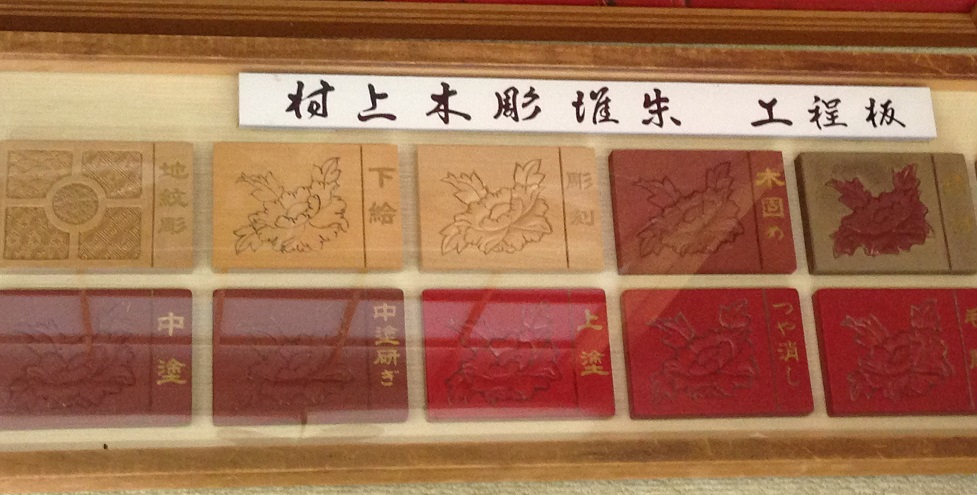 村上木彫堆朱 工程板
地紋彫
下絵
彫刻
木固め
中塗
中塗研ぎ
上塗
つや消し